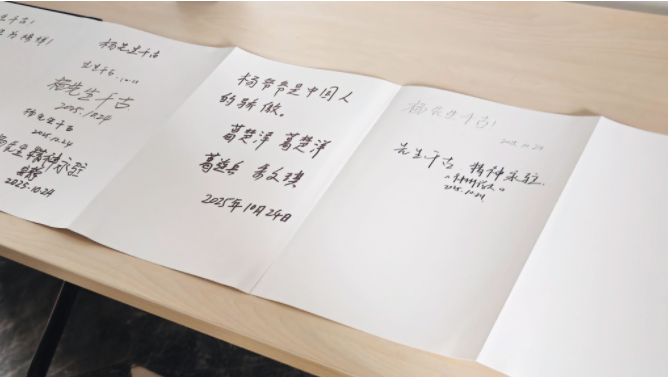 生千古!
为榜样!
杨先生千古
先生千古
杨先生千古
2025.10.24
杨先生千古
2025.10.24
先生精神永驻
2025.10.24
杨爷爷是中国人
的骄傲。
葛楚泽 葛楚洋
葛延兵 秦文琪
2025年10月24日
杨先生千古!
2025.10.24
先生千古 精神永驻.
2025.10.24